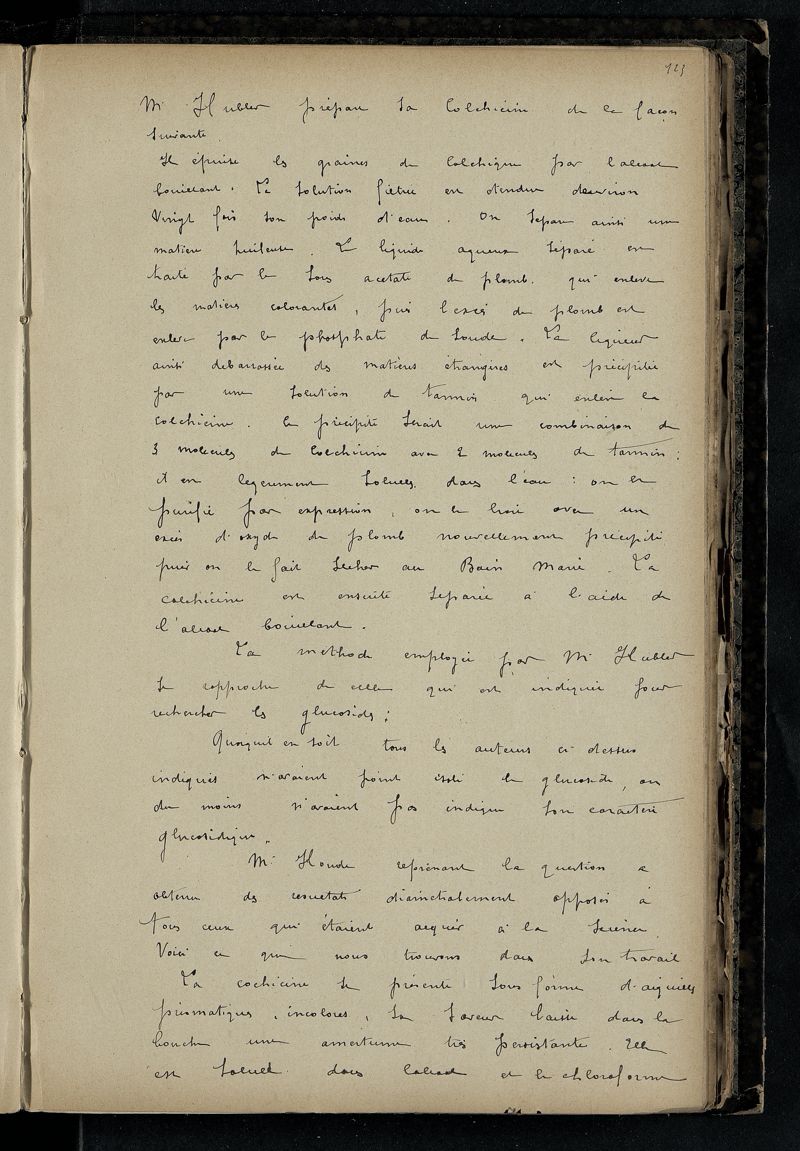 123
Mr Hubler prépare la Colchicine de la façon
suivante.
Il épuise les graines de Colchique par l'alcool
bouillant. La solution filtrée est étendue d'environ
Vingt fois son poids d'eau. On sépare ainsi une
matière huileuse. Le liquide aqueux séparé est
traité par le sous acetate de plomb. qui enlève
les matières colorantes, puis l'excès de plomb est
enlevé par le phosphate de soude. La liqueur
ainsi debarrassée des matières étrangères est précipitée
par une solution de tannin qui enlève la
colchicine. le précipité serait une combinaison de
3 molecules de Colchicine avec 2 molecules de tannin;
il est legerement soluble dans l'eau: on le
purifie par expression, on le broie avec un
excès d'oxyde de plomb nouvellement précipité
puis on le fait sécher au Bain Marie. La
colchicine est ensuite séparée à l'aide de
l'alcool bouillant.
La méthode employée par Mr Hubler
se rapproche de celle qui est indiquée pour
rechercher les glucosides;
Quoiqu'il en soit tous les auteurs ci-dessus
indiqués n'avaient point isolé le glucoside, ou
du moins n'avaient pas indiqué son caractère
glucosidique.
Mr Houdé reprenant la question a
obtenu des resultats diamétralement opposés à
tous ceux qui étaient acquis à la Science
Voici ce que nous trouvons dans son travail
La cochicine se présente sous forme d'aiguilles
prismatiques, incolores, sa saveur laisse dans la
bouche une amertume très persistante. Elle
est soluble dans l'alcool et le chloroforme